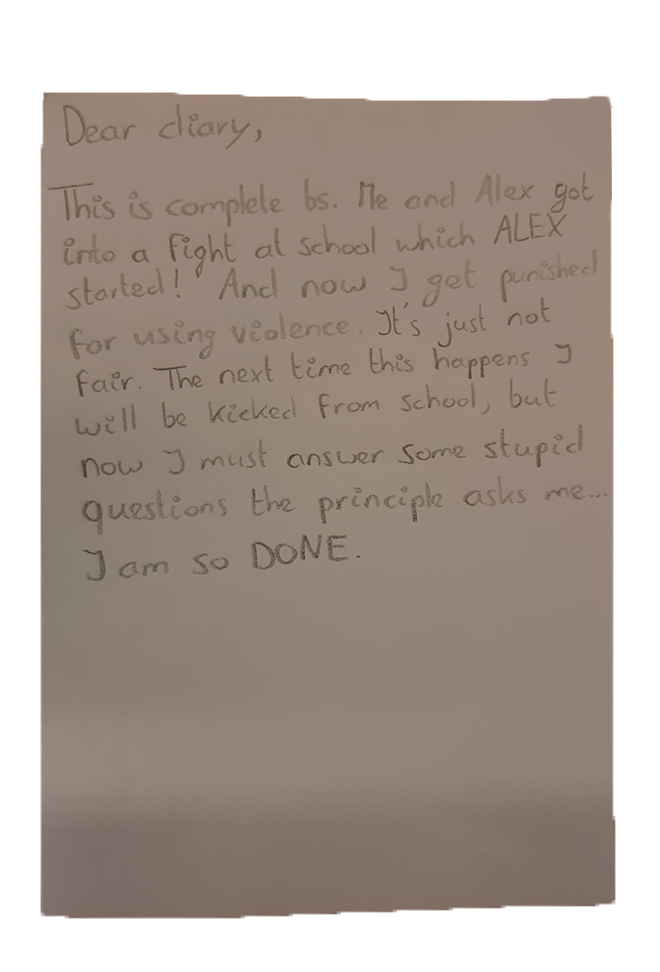 Dear diary,
This is complete bs. Me and Alex got
into a fight at school which ALEX
started! And now I get punished
for using violence. It's just not
fair. The next time this happens I
will be kicked from school, but
now I must answer some stupid
questions the principle asks me...
I am so DONE.